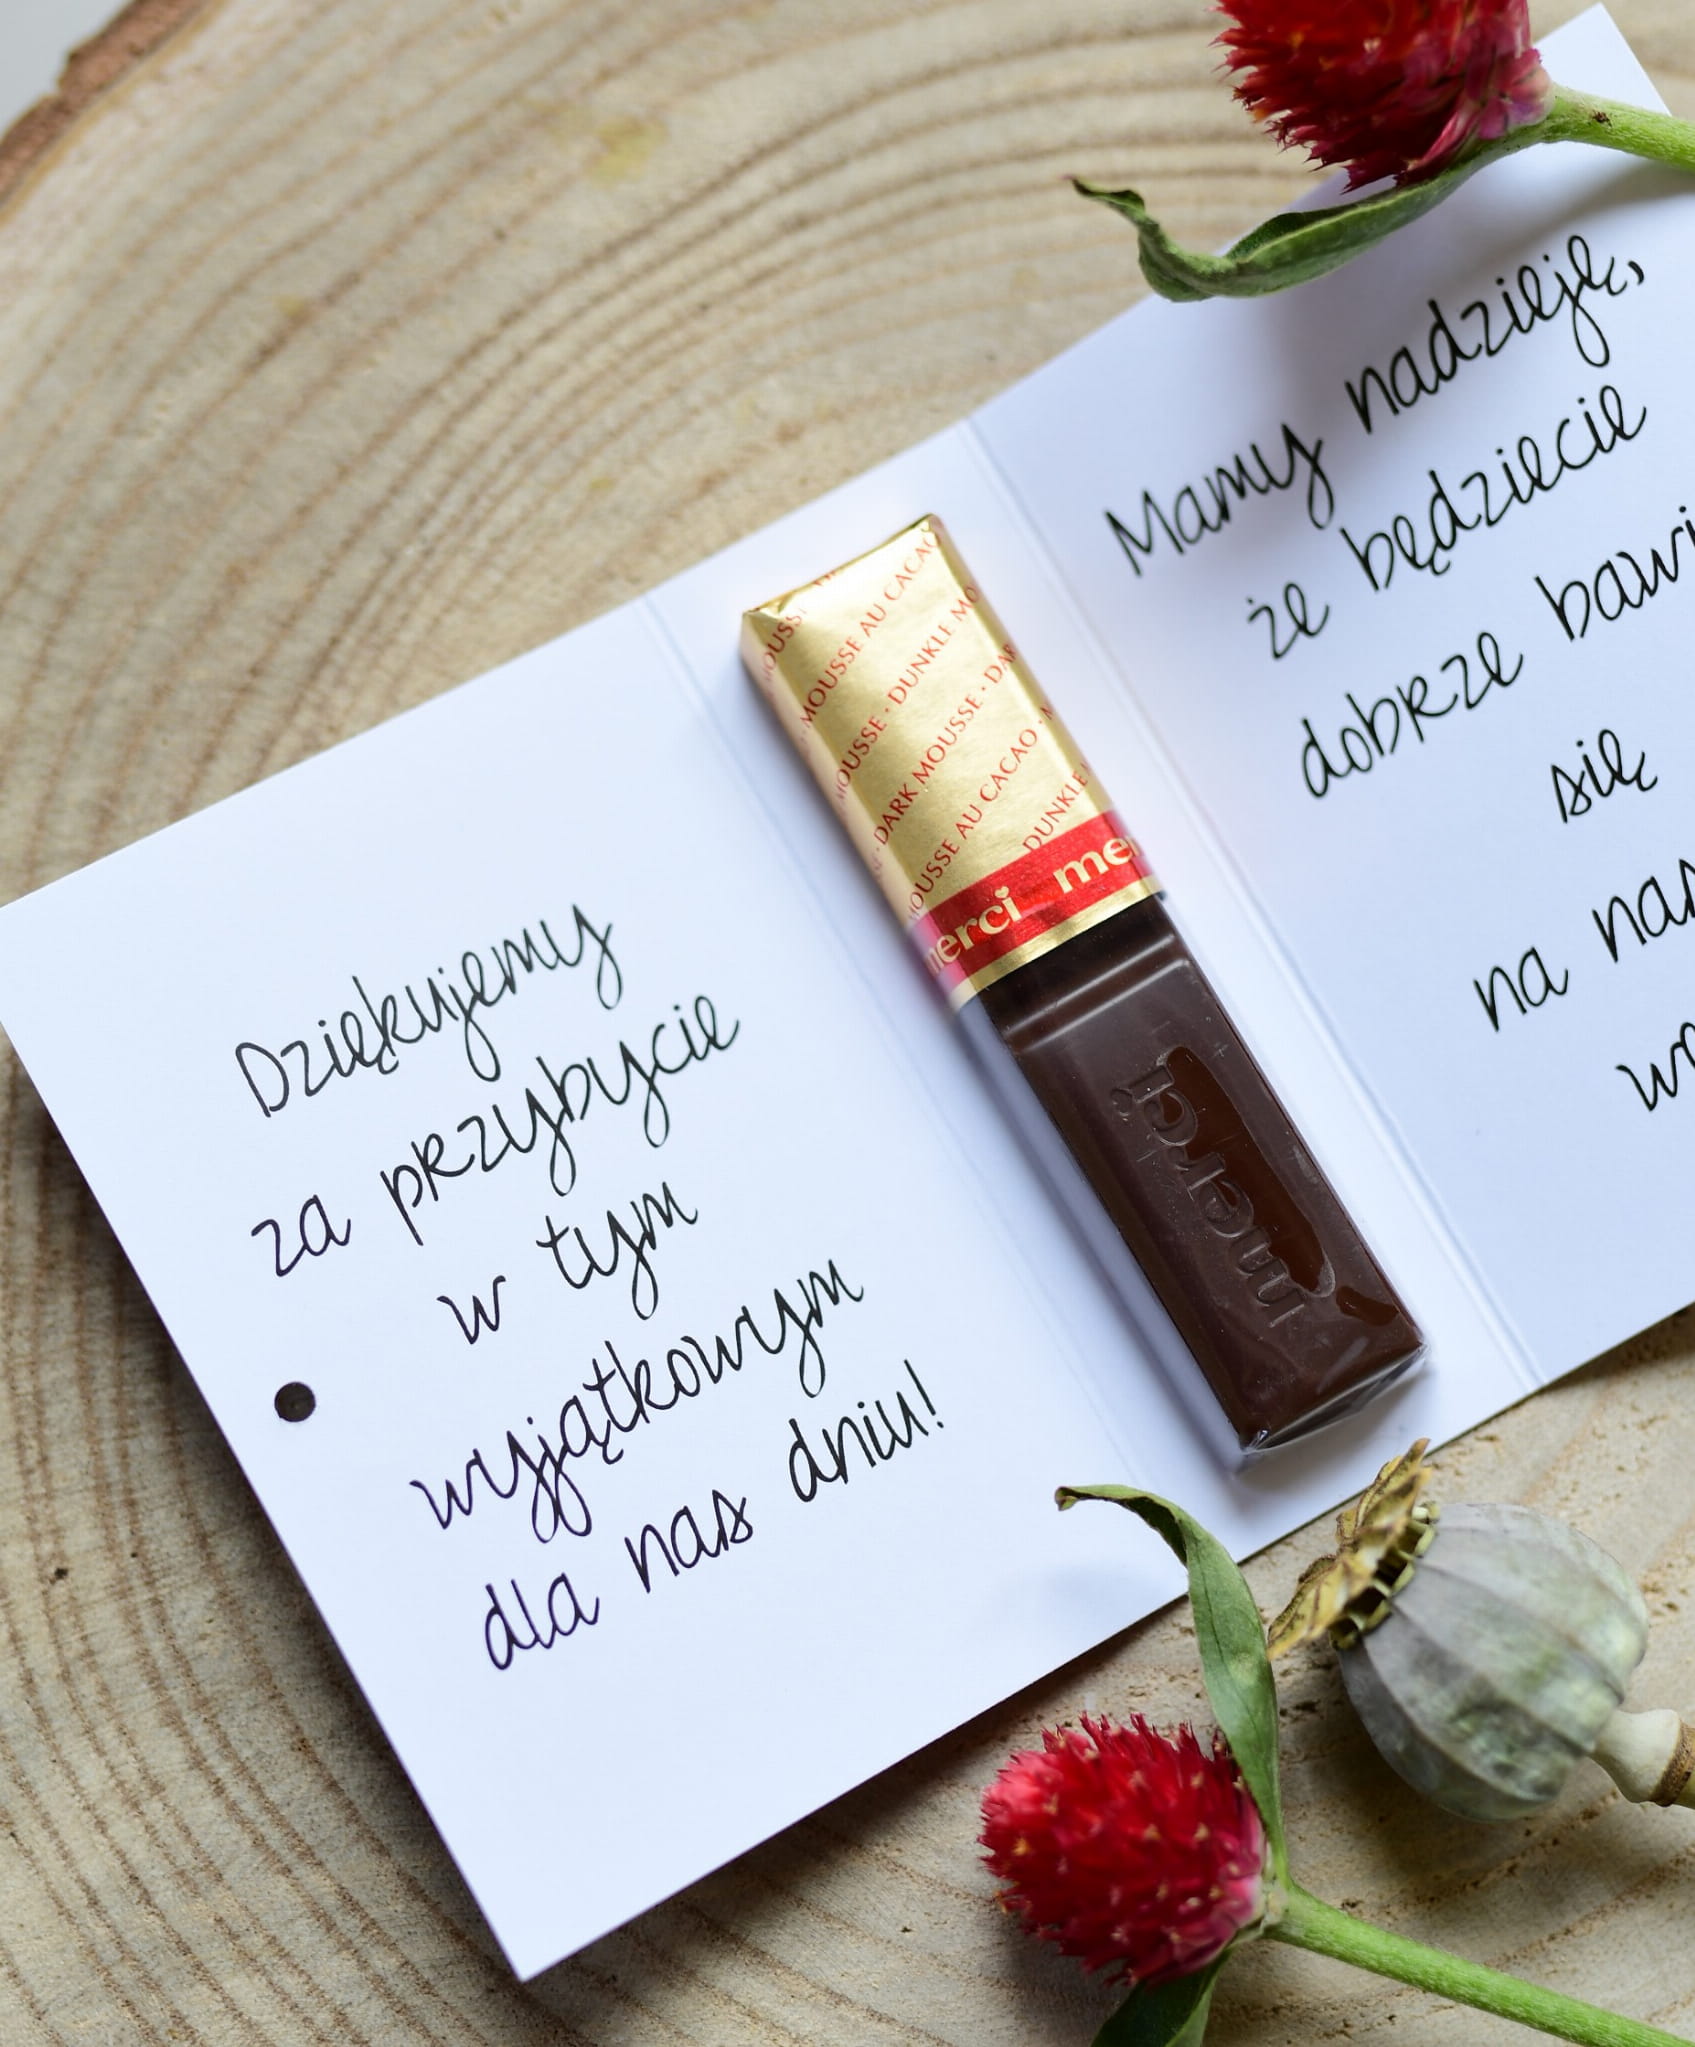 Dziękujemy
za przybycie
w tym
wyjątkowym
dla nas dniu!
MOUSSE AU CACAO
MOUSSE · DUNKLE MO
· DARK MOUSSE · DAR
MOUSSE AU CACAO ·
DUNKLE
merci mer
merci
Mamy nadzieję,
że będziecie
dobrze bawi
się
na nas